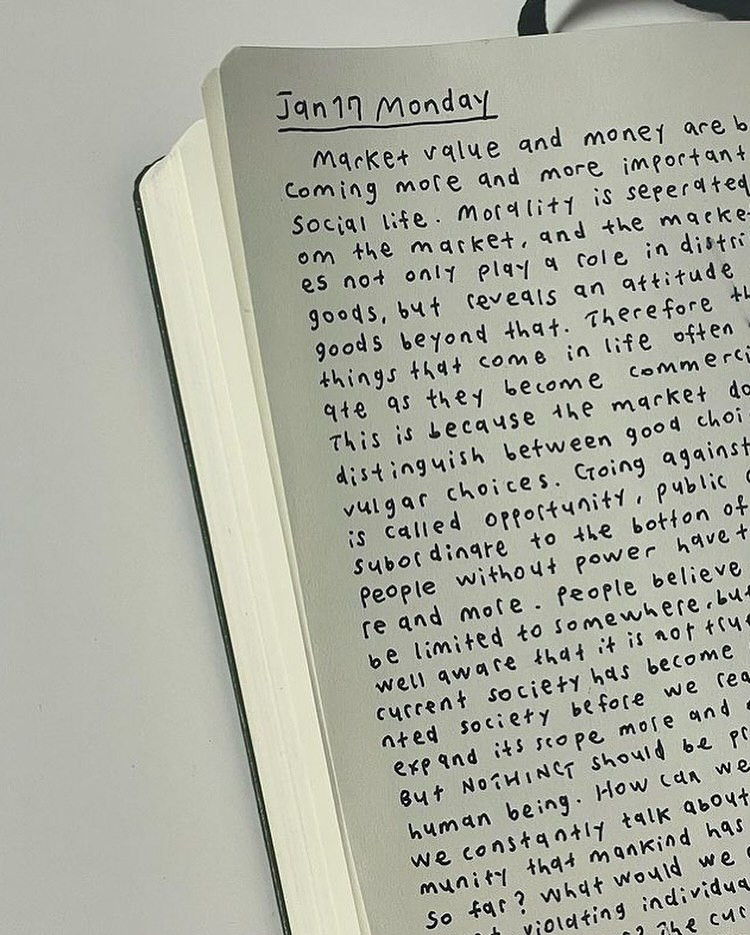 Jan 17 Monday
Market value and money are b
coming more and more important
social life. Morality is seperated
om the market, and the marke
es not only play a role in distri
goods, but reveals an attitude
goods beyond that. Therefore th
things that come in life often
ate as they become commerci
This is because the market do
distinguish between good choi
vulgar choices. Going against
is called opportunity, public
subordinate to the botton of
people without power have t
re and more. People believe
be limited to somewhere, but
well aware that it is not tru
current society has become
nted society before we rea
expand its scope more and
But NOTHING should be pr
human being. How can we
we constantly talk about
munity that mankind has
so far? What would we
violating individua
? The cur